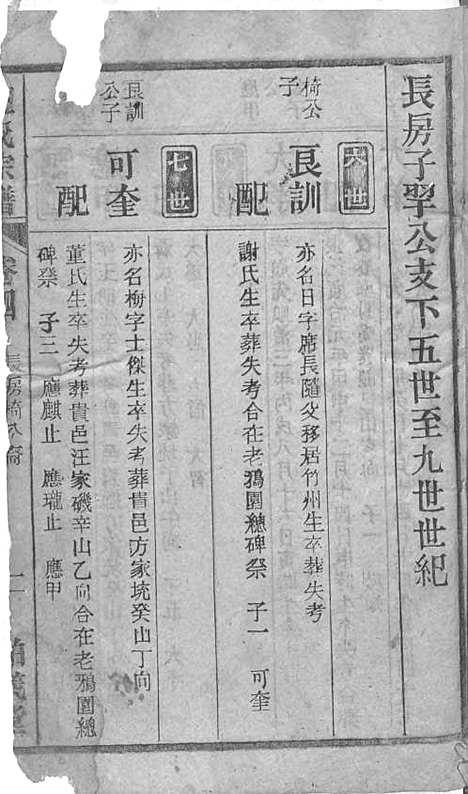 長房子翠公支下五世至九世世紀
六世
椅公子
艮訓
亦名日字席長隨父移居竹州生卒葬失考
配
謝氏生卒葬失考合在老鴉園總碑祭 子一 可奎
七世
艮訓公子
可奎
亦名梅字士傑生卒失考葬貴邑方家坑癸山丁向
配
董氏生卒失考葬貴邑汪家磯辛山乙向合在老鴉園總
碑祭 子三 應麒止 應瓏止 應甲
氏宗譜
卷四
長房椅公裔